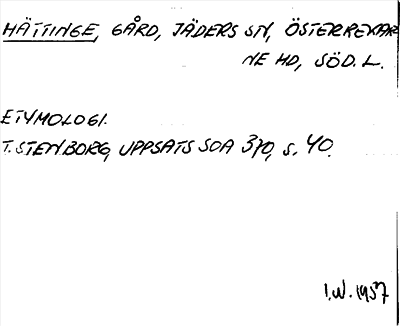 HÄTTINGE, GÅRD, JÄDERS SN, ÖSTERREKAR
NE HD, SÖD. L.
ETYMOLOGI.
T. STENBORG, UPPSATS SOA 370, S. 40.
I.W. 1957